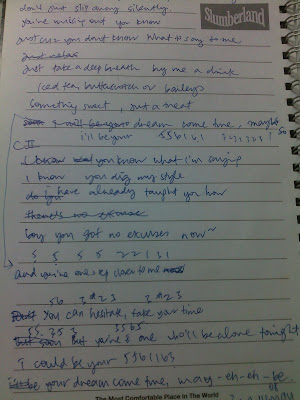 don't just slip away silently
you're missing out you know
just cuz you dont know what to say to me
just relax
Just take a deep breath buy me a drink
Slumberland
Iced tea butterscotch or baileys
Something sweet, just a treat
dream come time, maybe
i'll be your 5 5 6 1 6 1
So
C II
you know what I'm saying
I know you dig my style
i have already taught you how
boy you got no excuses now~
5 5 5 5 2 2 1 3 1
and you're one step closer to me
56 3#23 3#23
You can hesitate, take your time
but you're 1 one who'll be alone tonight
I could be your 5561163
be your dream come time, may-eh-eh-be
The Most Comfortable Place In The World